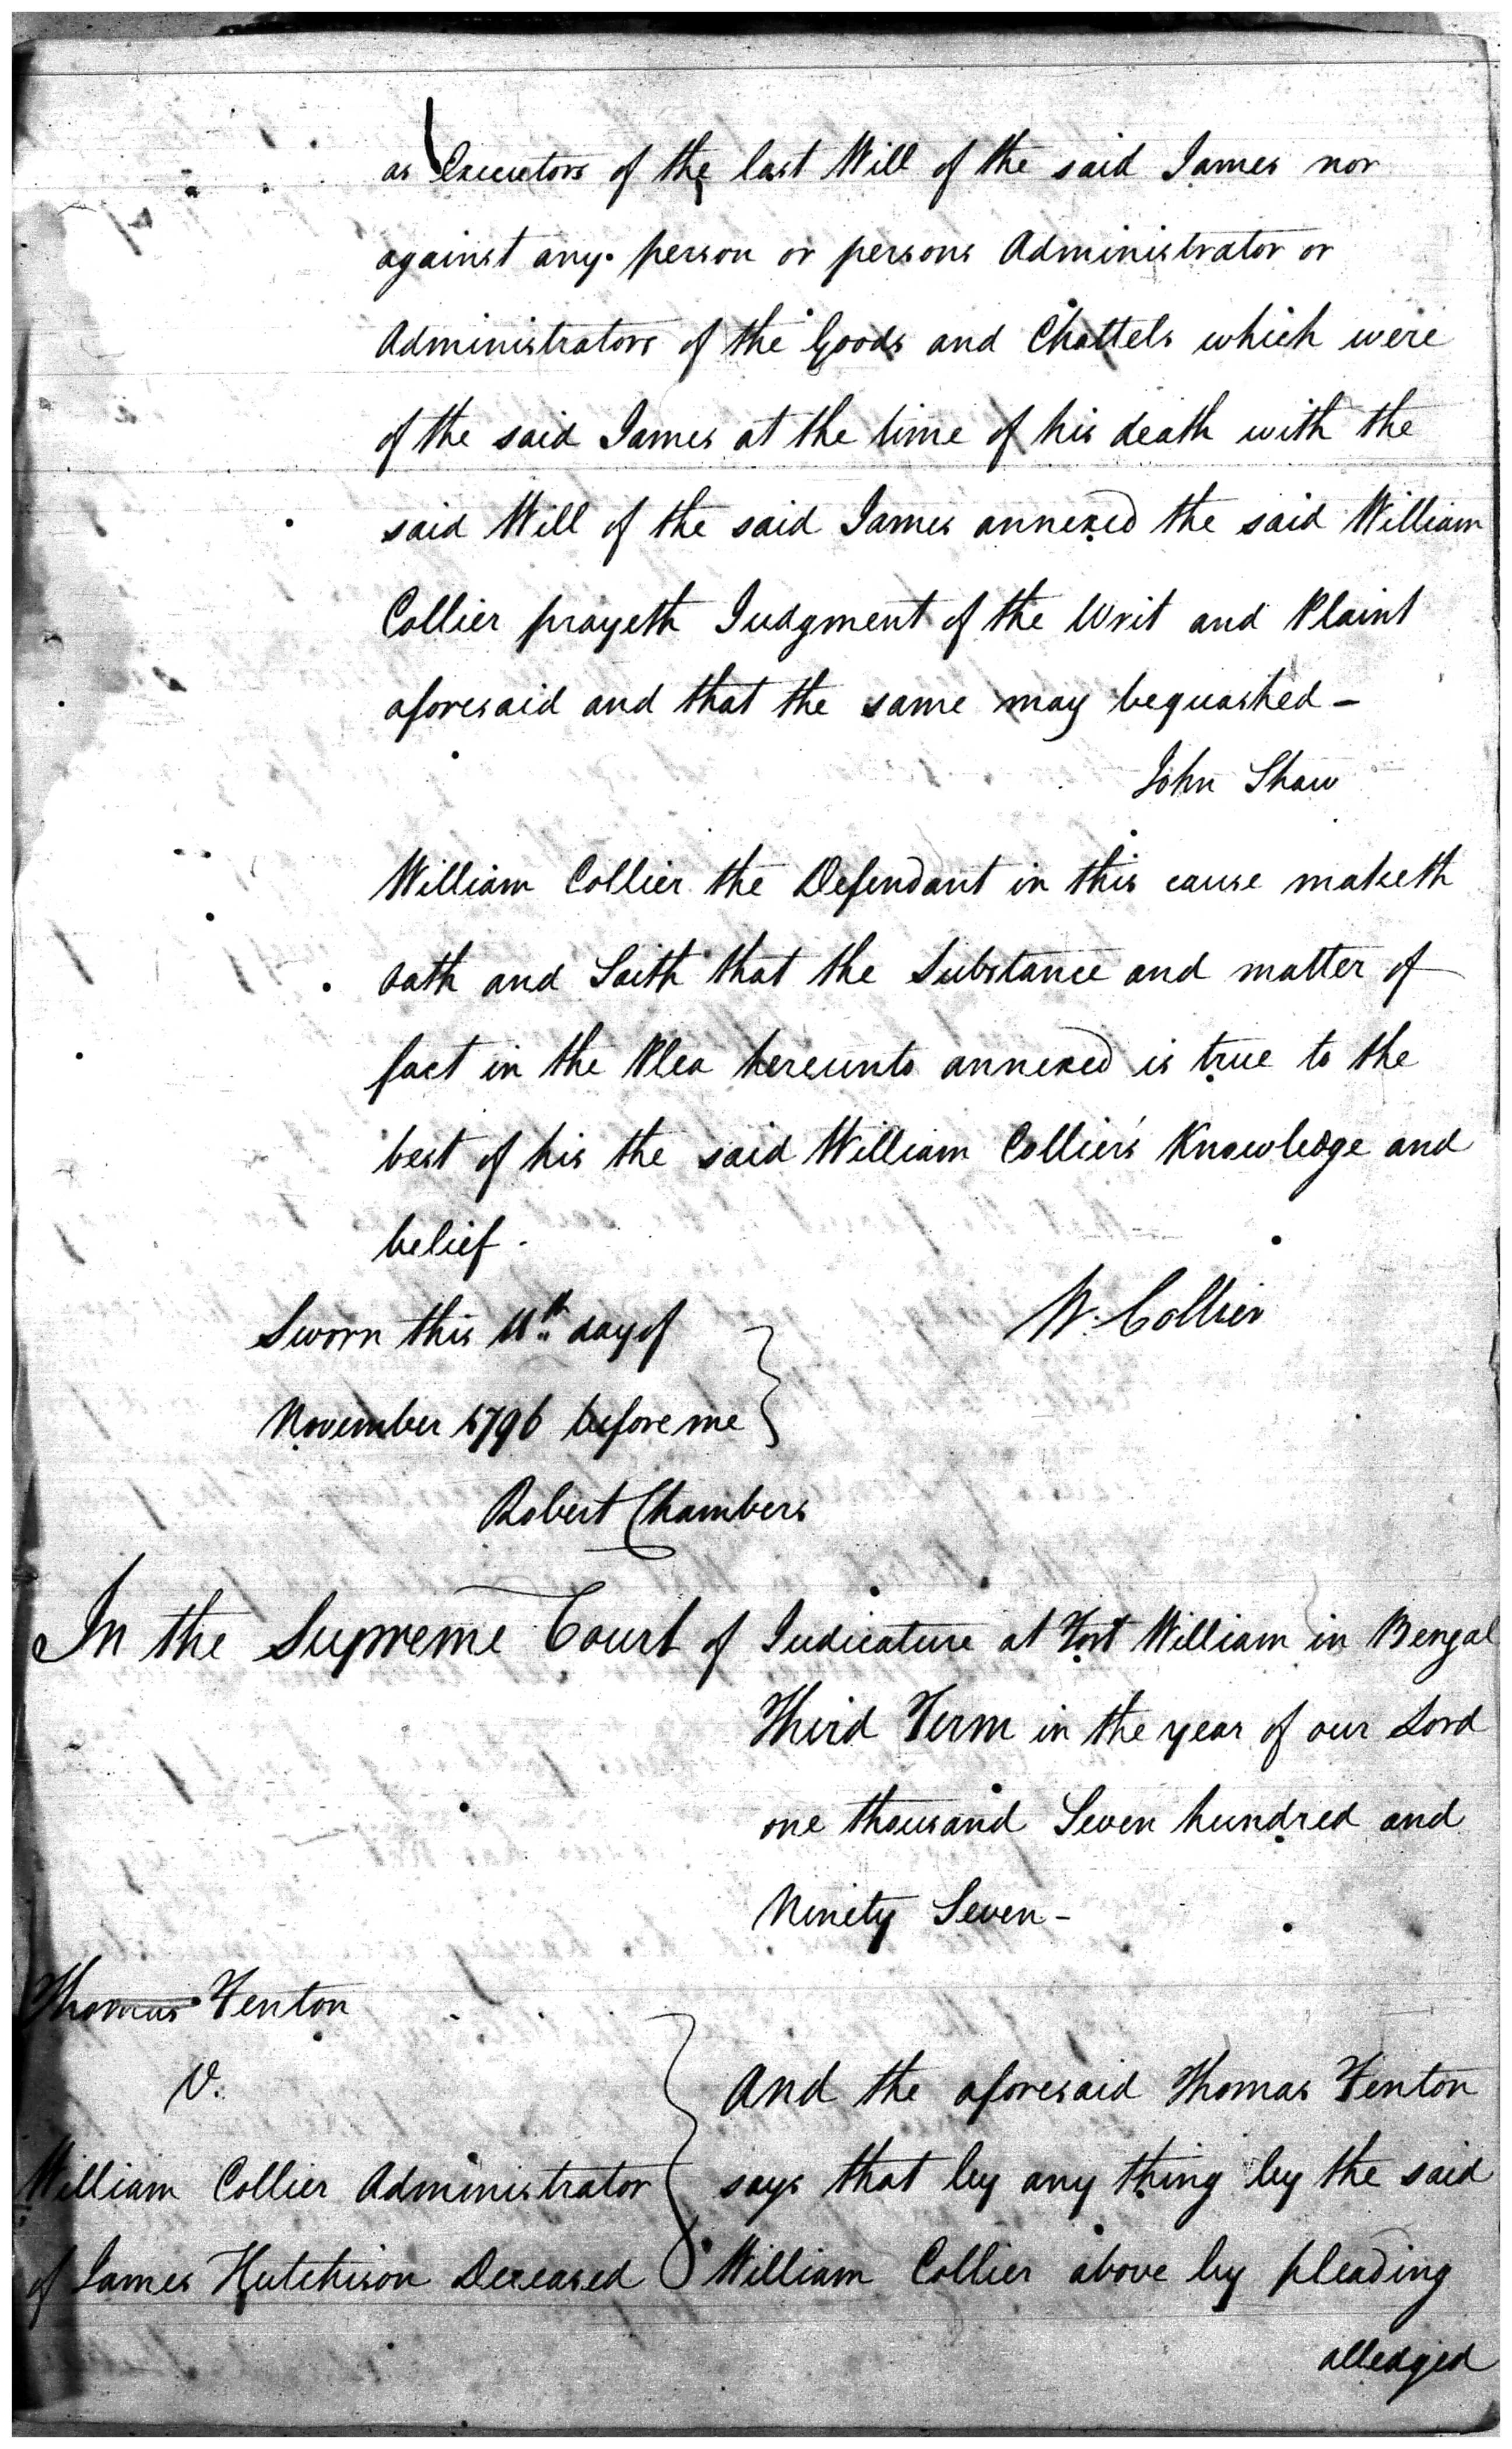 as Executors of the last Will of the said James nor
against any person or persons Administrator or
Administrators of the Goods and Chattels which were
of the said James at the time of his death with the
said Will of the said James annexed the said William
Collier prayeth Judgment of the Writ and Plaint
aforesaid and that the same may be quashed –
John Shaw
William Collier the Defendant in this cause maketh
oath and Saith that the Substance and matter of
fact in the Plea hereunto annexed is true to the
best of his the said William Collier's Knowledge and
belief -
W. Collier
Sworn this 11th day of
November 1796 before me
Robert Chambers
In the Supreme Court of Judicature at Fort William in Bengal
Third Term in the year of our Lord
one thousand Seven hundred and
Ninety Seven -
Thomas Fenton
V.
William Collier Administrator
of James Hutchison Deceased
And the aforesaid Thomas Fenton
says that by any thing by the said
William Collier above by pleading
alledged